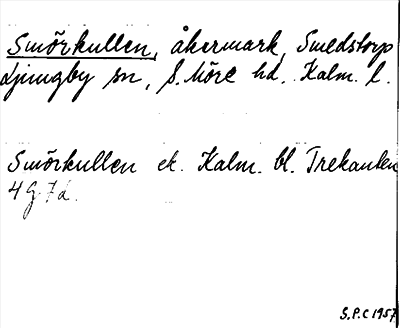 Smörkullen, åkermark, Smedstorp
Ljungby sn, S. Möre hd. Kalm. l.
Smörkullen ek. Kalm. bl. Trekanten
4 G 7 d.
S.P.C 1957